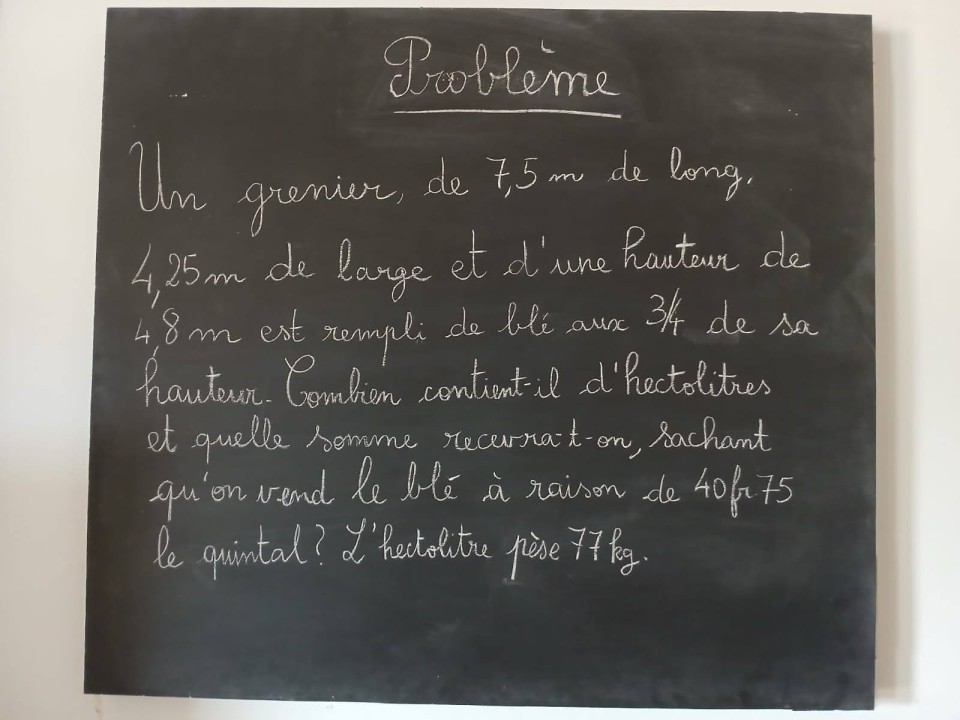 Problème
Un grenier, de 7,5 m de long,
4,25 m de large et d'une hauteur de
4,8 m est rempli de blé aux 3/4 de sa
hauteur. Combien contient-il d'hectolitres
et quelle somme recevra-t-on, sachant
qu'on vend le blé à raison de 40 fr 75
le quintal? L'hectolitre pèse 77 kg.